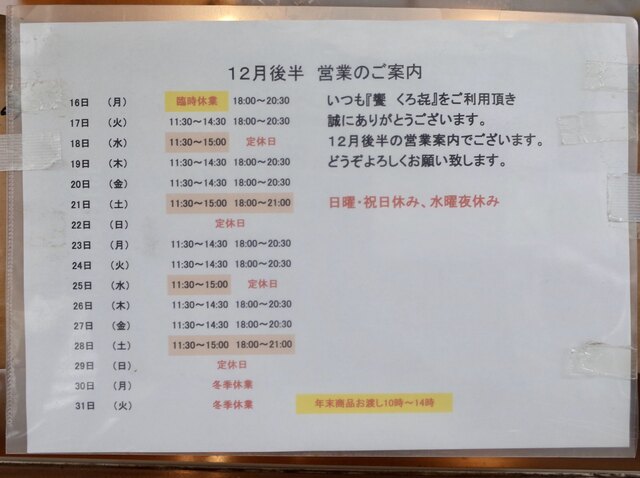 12月後半 営業のご案内
16日 (月) 臨時休業 18:00～20:30
17日 (火) 11:30～14:30 18:00～20:30
18日 (水) 11:30～15:00 定休日
19日 (木) 11:30～14:30 18:00～20:30
20日 (金) 11:30～14:30 18:00～20:30
21日 (土) 11:30～15:00 18:00～21:00
22日 (日) 定休日
23日 (月) 11:30～14:30 18:00～20:30
24日 (火) 11:30～14:30 18:00～20:30
25日 (水) 11:30～15:00 定休日
26日 (木) 11:30～14:30 18:00～20:30
27日 (金) 11:30～14:30 18:00～20:30
28日 (土) 11:30～15:00 18:00～21:00
29日 (日) 定休日
30日 (月) 冬季休業
31日 (火) 冬季休業 年末商品お渡し10時～14時
いつも『饗 くろ㐂』をご利用頂き
誠にありがとうございます。
12月後半の営業案内でございます。
どうぞよろしくお願い致します。
日曜・祝日休み、水曜夜休み